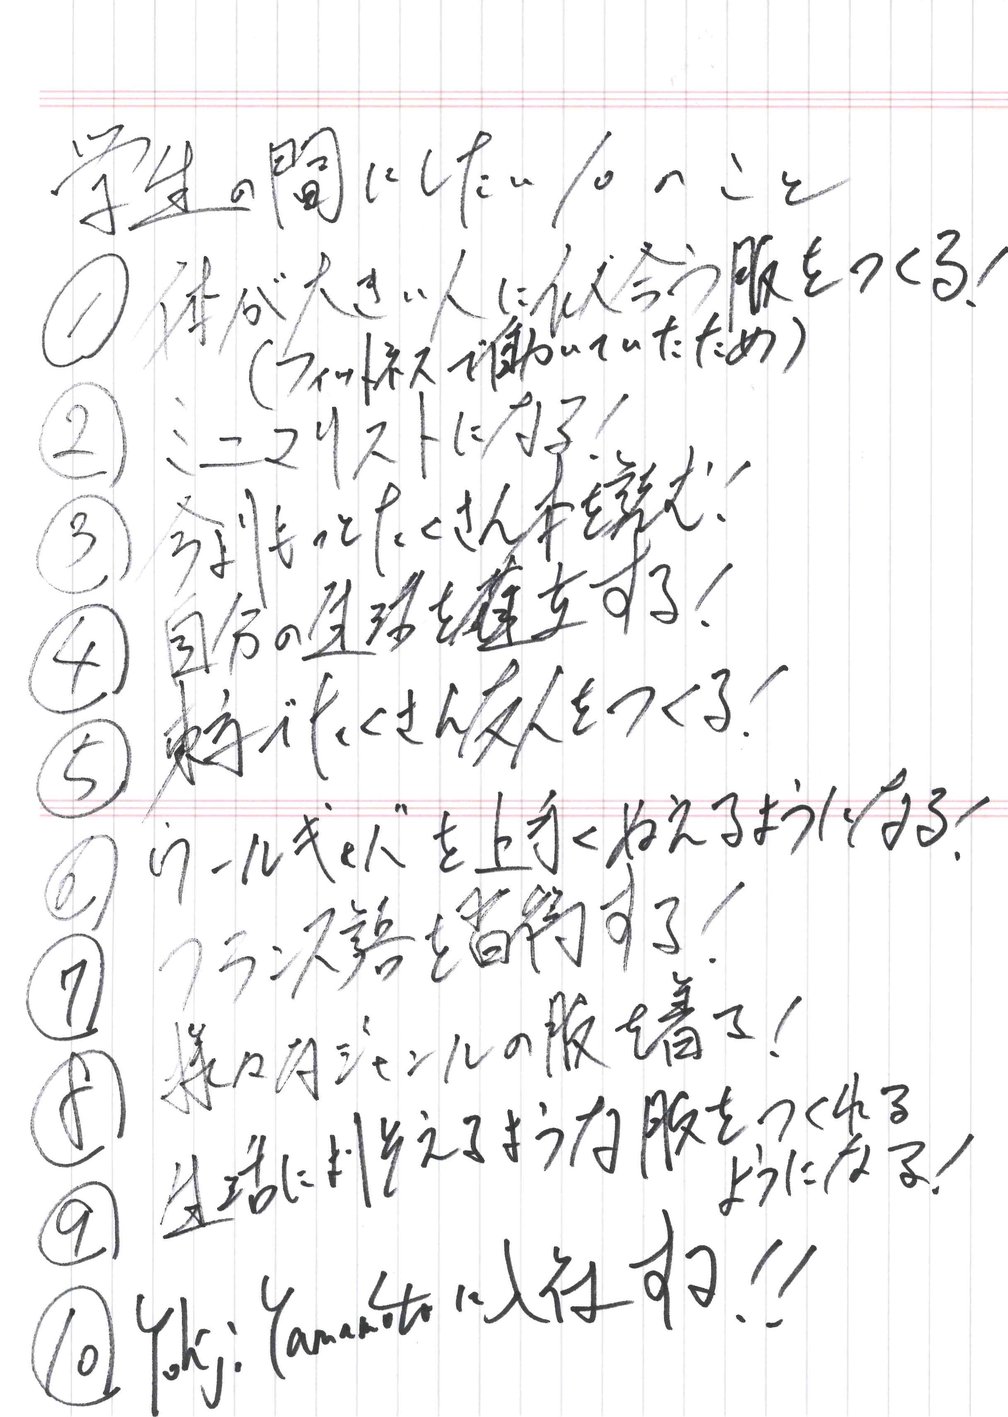 学生の間にしたい10のこと
① 体が大きい人に似合う服をつくる!
(フィットネスで働いていたため)
② ミニマリストになる!
③ 今よりもっとたくさん本を読む!
④ 自分の生活を確立する!
⑤ 東京でたくさん友人をつくる!
⑥ ウールギャバを上手くぬえるようになる!
⑦ フランス語を習得する!
⑧ 様々なジャンルの服を着る!
⑨ 生活により添えるような服をつくれる
ようになる!
⑩ Yohji Yamamotoに入社する!!